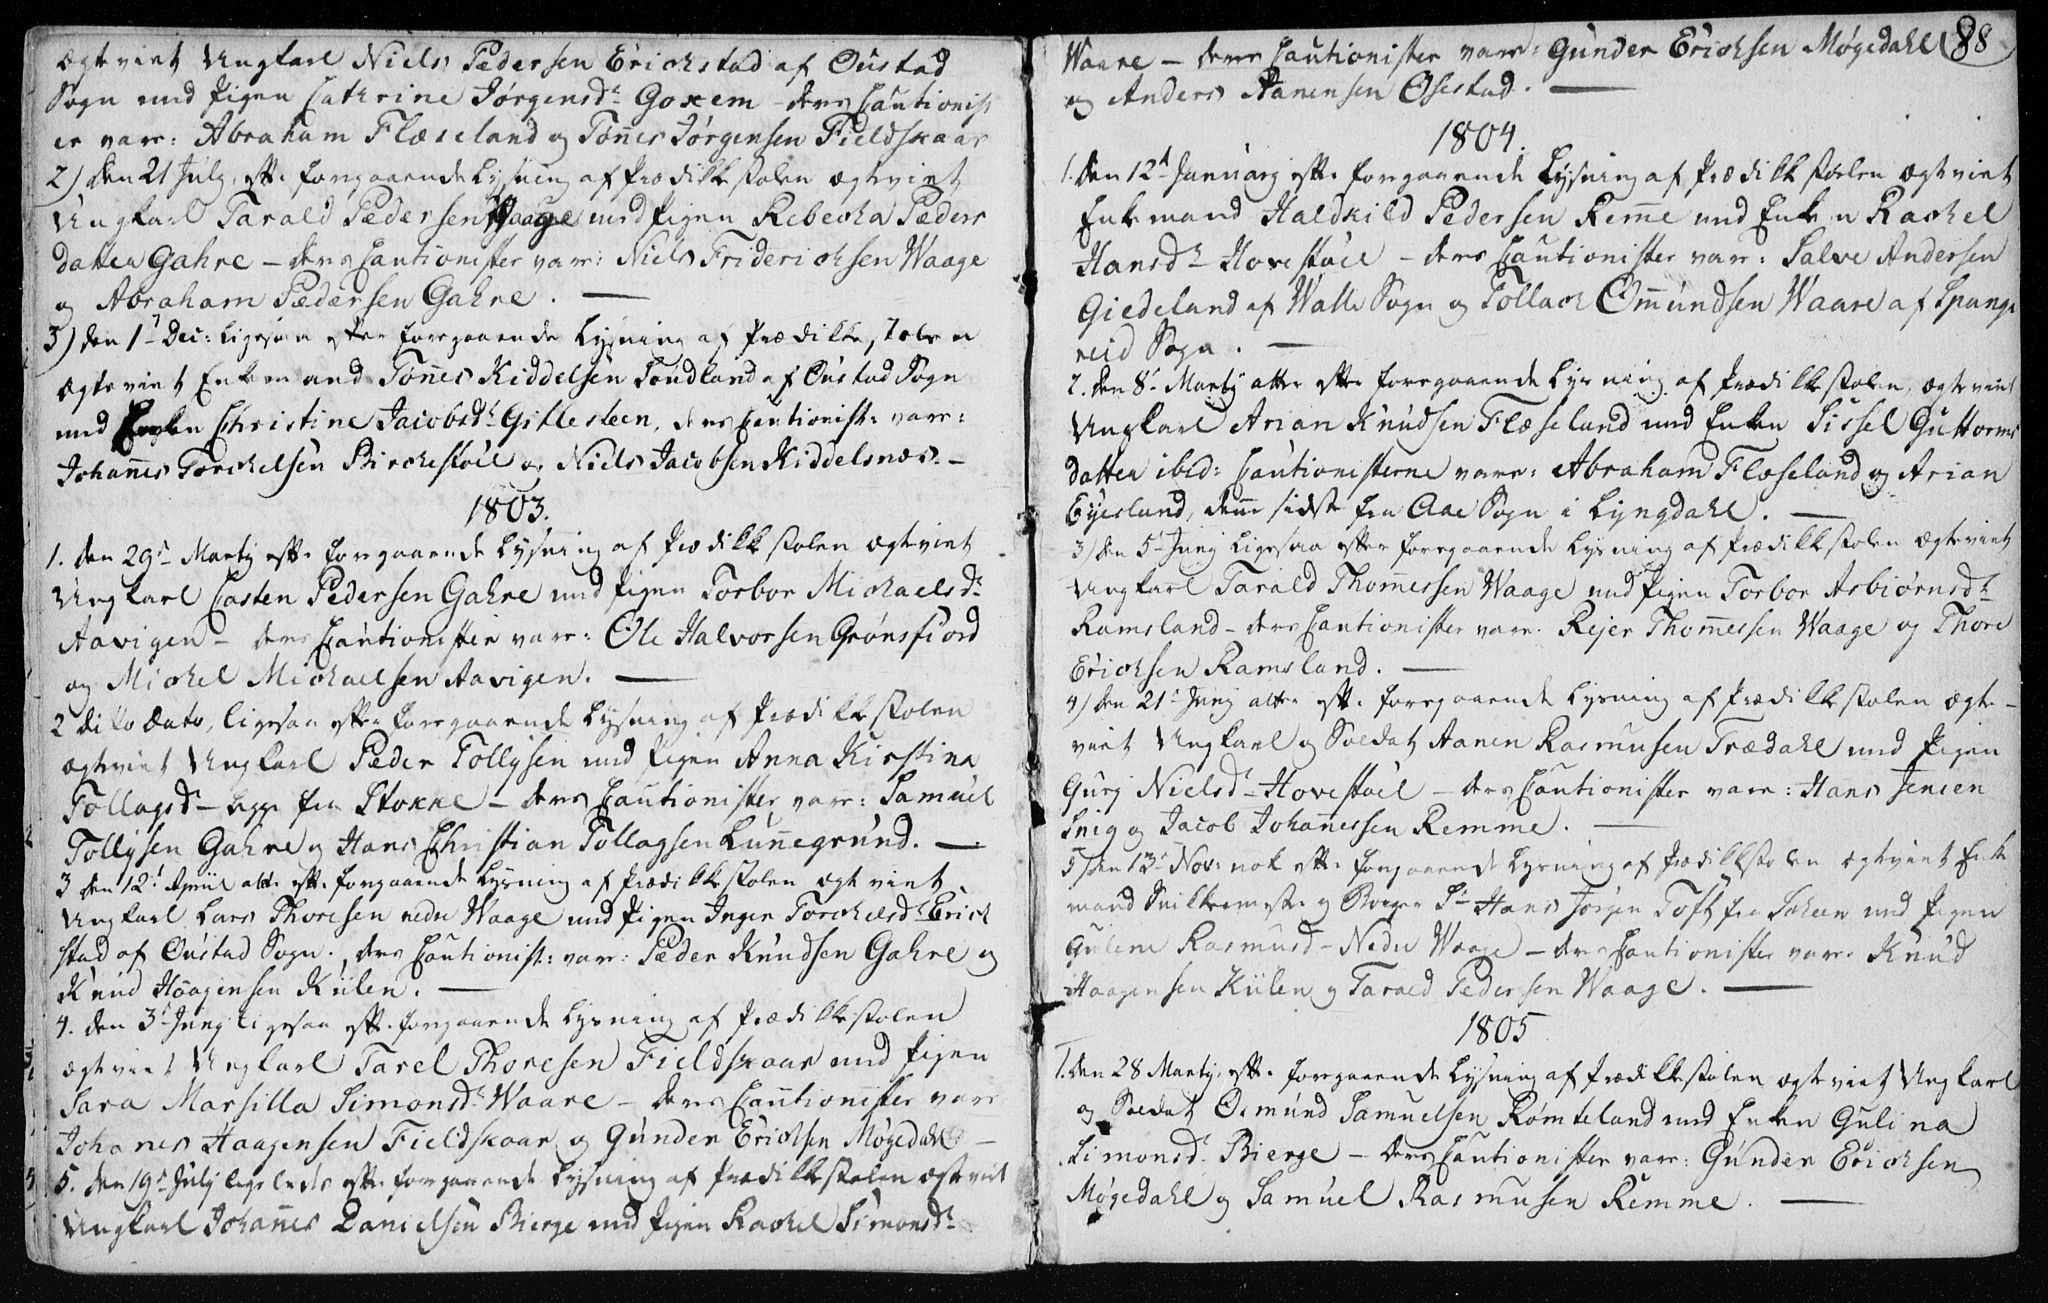 ægteviet Ungkarl Niels Pedersen Erichstad af Oustad
Sogn med Pigen Cathrine Jørgensd. Goxem - deres Cautionist
er vare: Abraham Flæseland og Tønnes Jørgensen Fieldskaar
2) den 21 July, eft. foregaaende Lysning af Prædikkestolen ægteviet
Ungkarl Tarald Pedersen Waage med Pigen Rebecha Peders
datter Gahre - deres Cautionister var: Niels Friderichsen Waage
og Abraham Pedersen Gahre. —
3) den 1 Dec: ligesaa efter foregaaende Lysning af Prædikkestolen
ægteviet Enkemand Tønnes Kiddelsen Lendland af Oustad Sogn
med Enken Christine Jacobsd. Gitlesteen, deres Cautionist: vare:
Johannes Torchelsen Birchestøel og Niels Jacobsen Kiddelsnæs. —
1803.
1. den 29 Martij eft. foregaaende Lysning af Prædikkestolen ægteviet
Ungkarl Casten Pedersen Gahre med Pigen Torbor Michaelsd.
Aavigen - deres Cautionister vare: Ole Halvorsen Grønsfiord
og Michel Michaelsen Aavigen. —
2 dito Dato, ligesaa efter foregaaende Lysning af Prædikkestolen
ægteviet Ungkarl Peder Tollysen med Pigen Anna Kirstina
Tollagsd. - begge fra Stokke - deres Cautionister vare: Samuel
Tollysen Gahre og Hans Christian Tollagsen Lunnegrund. —
3 den 12t April att. eft. foregaaende Lysning af Prædikkestolen ægteviet
Ungkarl Lars Thoresen nedre Waage med Pigen Inger Torchelsd. Erich
stad af Oustad Sogn., deres Cautionist: var: Peder Knudsen Gahre og
Knud Haagensen Kulen. —
4. den 3 Junij ligesaa eft. foregaaende Lysning af Prædikkestolen
ægteviet Ungkarl Tarel Thoresen Fieldskaar med Pigen
Sara Marsilla Simonsd. Waare - deres Cautionister vare
Johanes Haagensen Fieldskaar og Gunder Erichsen Møgedahl —
5. den 19 July ligeledes eft. foregaaende Lysning af Prædikkestolen ægteviet
Ungkarl Johannes Danielsen Bierge med Pigen Rachel Simonsd.
88
Waare - deres Cautionister vare: Gunder Erichsen Møgedahl
og Anders Aanensen Osestad. —
1804.
1. den 12t Januarij eft. foregaaende Lysning af Prædikkestoelen ægteviet
Enkemand Haldkild Pedersen Remme med Enken Rachel
Hansd. Hovestøel - deres Cautionister var: Salve Andersen
Giedeland af Walle Sogn og Tollach Ommundsen Waare af Spange
reid Sogn. —
2. den 8 Martij atter efter foregaaende Lysning af Prædikkestolen ægteviet
Ungkarl Arian Knudsen Flæseland med Enken Sissel Guttorms
datter ibid: Cautionisterne vare: Abraham Flæseland og Arian
Eyersland, denne sidste fra Aae Sogn i Lyngdahl. —
3) den 5 Junij ligesaa efter foregaaende Lysning af Prædikkestolen ægteviet
Ungkarl Tarald Thommessen Waage med Pigen Torbor Asbiørnsd.
Ramsland - deres Cautionister var. Rejer Thommessen Waage og Thore
Erichsen Ramsland. —
4) den 21 Junij atter eft. foregaaende Lysning af Prædikkestolen ægte-
viet Ungkarl og Soldat Aanen Rasmusen Trædahl med Pigen
Gurj Nielsd. Hovestøel - deres Cautionister vare: Hans Jensen
Snig og Jacob Johannessen Remme. —
5) den 13 Nov: nok eft. foregaaende Lysning af Prædikkestolen ægteviet Enke
mand Sr Hans Jørgen Toft fra med Pigen
Guline Rasmusd. Nedre Waage - deres Cautionister vare. Knud
Haagensen Kulen og Tarald Pedersen Waage. —
1805
1. den 28 Martij, eft. foregaaende Lysning af Prædikkestolen ægteviet Ungkarl
og Soldat Osmund Samuelsen Rømteland med Enken Gulina
Simonsd. Bierge - deres Cautionister vare: Gunder Erichsen
Møgedahl og Samuel Rasmusen Remme. —